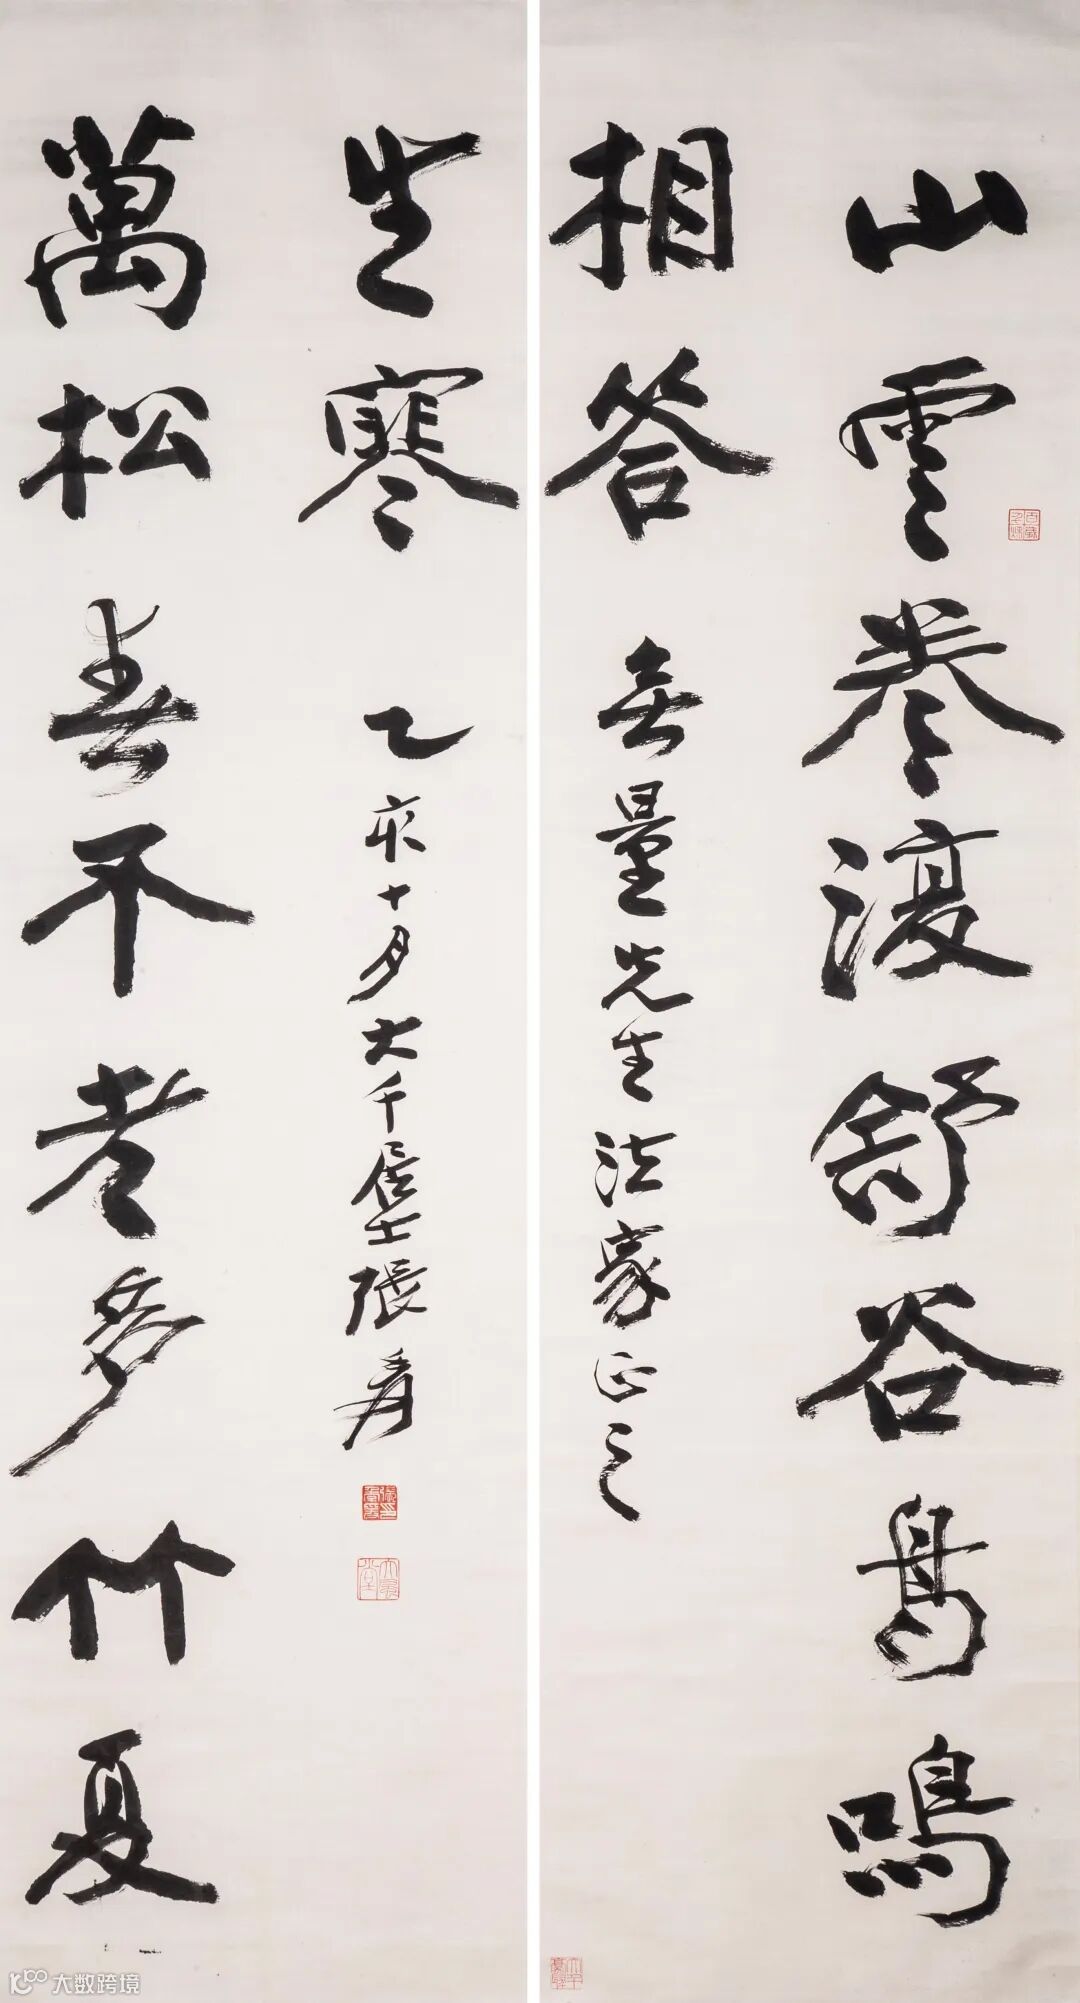 山雲卷復舒谷鳥鳴
相答
無量先生法家正之
萬松春不老多竹夏
生寒
乙亥十月大千居士張爰
大数跨境